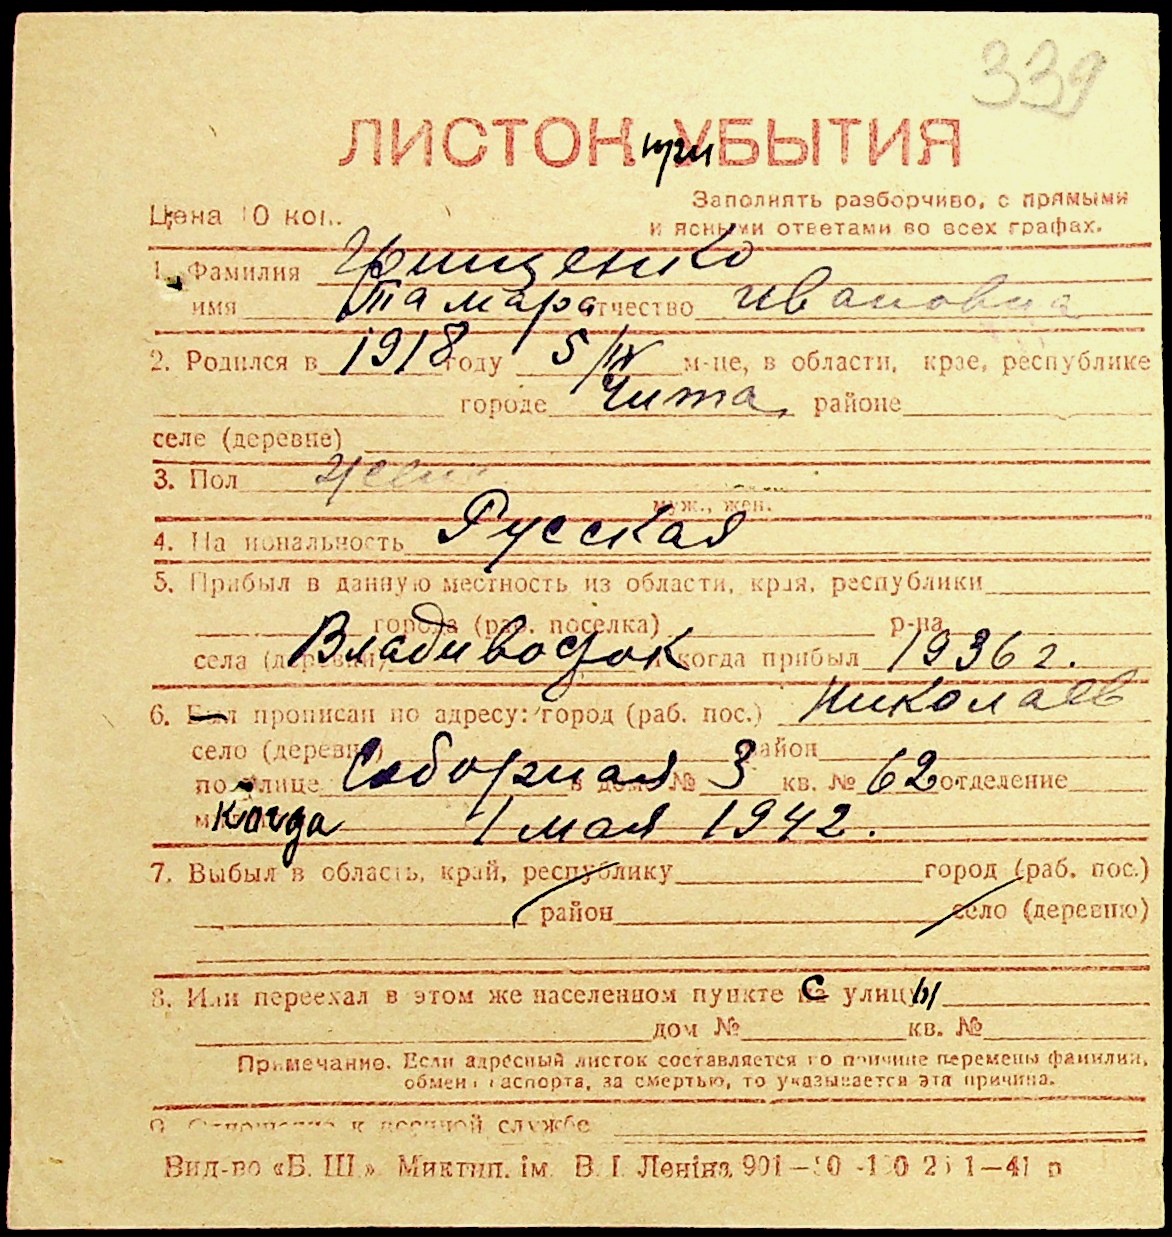 339
ЛИСТОК при УБЫТИЯ
Заполнять разборчиво, с прямыми
Цена 10 коп.
и ясными ответами во всех графах.
1. Фамилия Грищенко
имя Тамара отчество Ивановна
2. Родился в 1918 году 5/IV м-це, в области, крае, республике
городе Чита районе
селе (деревне)
3. Пол жен
муж., жен.
4. Национальность Русская
5. Прибыл в данную местность из области, края, республики
города (раб. поселка) р-на
села (деревни) Владивосток и когда прибыл 1936 г.
6. Был прописан по адресу: город (раб. пос.) Николаев
село (деревня) район
по улице Соборная в доме № 3 кв. № 62 отделение
Когда 1 мая 1942.
7. Выбыл в область, край, республику город (раб. пос.)
район село (деревню)
8. Или переехал в этом же населенном пункте с улицы
дом № кв. №
Примечание. Если адресный листок составляется по причине перемены фамилии,
обмена паспорта, за смертью, то указывается эта причина.
9. Отношение к военной службе
Вид-во «Б. Ш.» Миктип. ім. В. І. Леніна 901